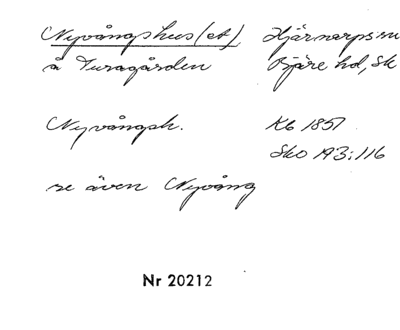 Nyvångshus (et) Hjärnarps sn
å Turagården Bjäre hd, Sk
Nyvångsh. Kb 1851
Sko 193:116
se även Nyvång
Nr 20212